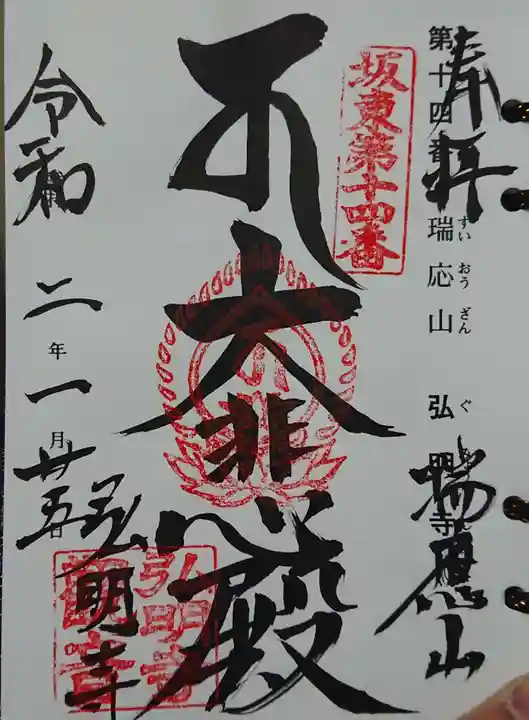 奉拝
瑞應山
第十四番 瑞応山 弘明寺
すいおうざん ぐ
坂東第十四番
大悲殿
弘明寺
弘明寺
観音
令和二年一月廿五日